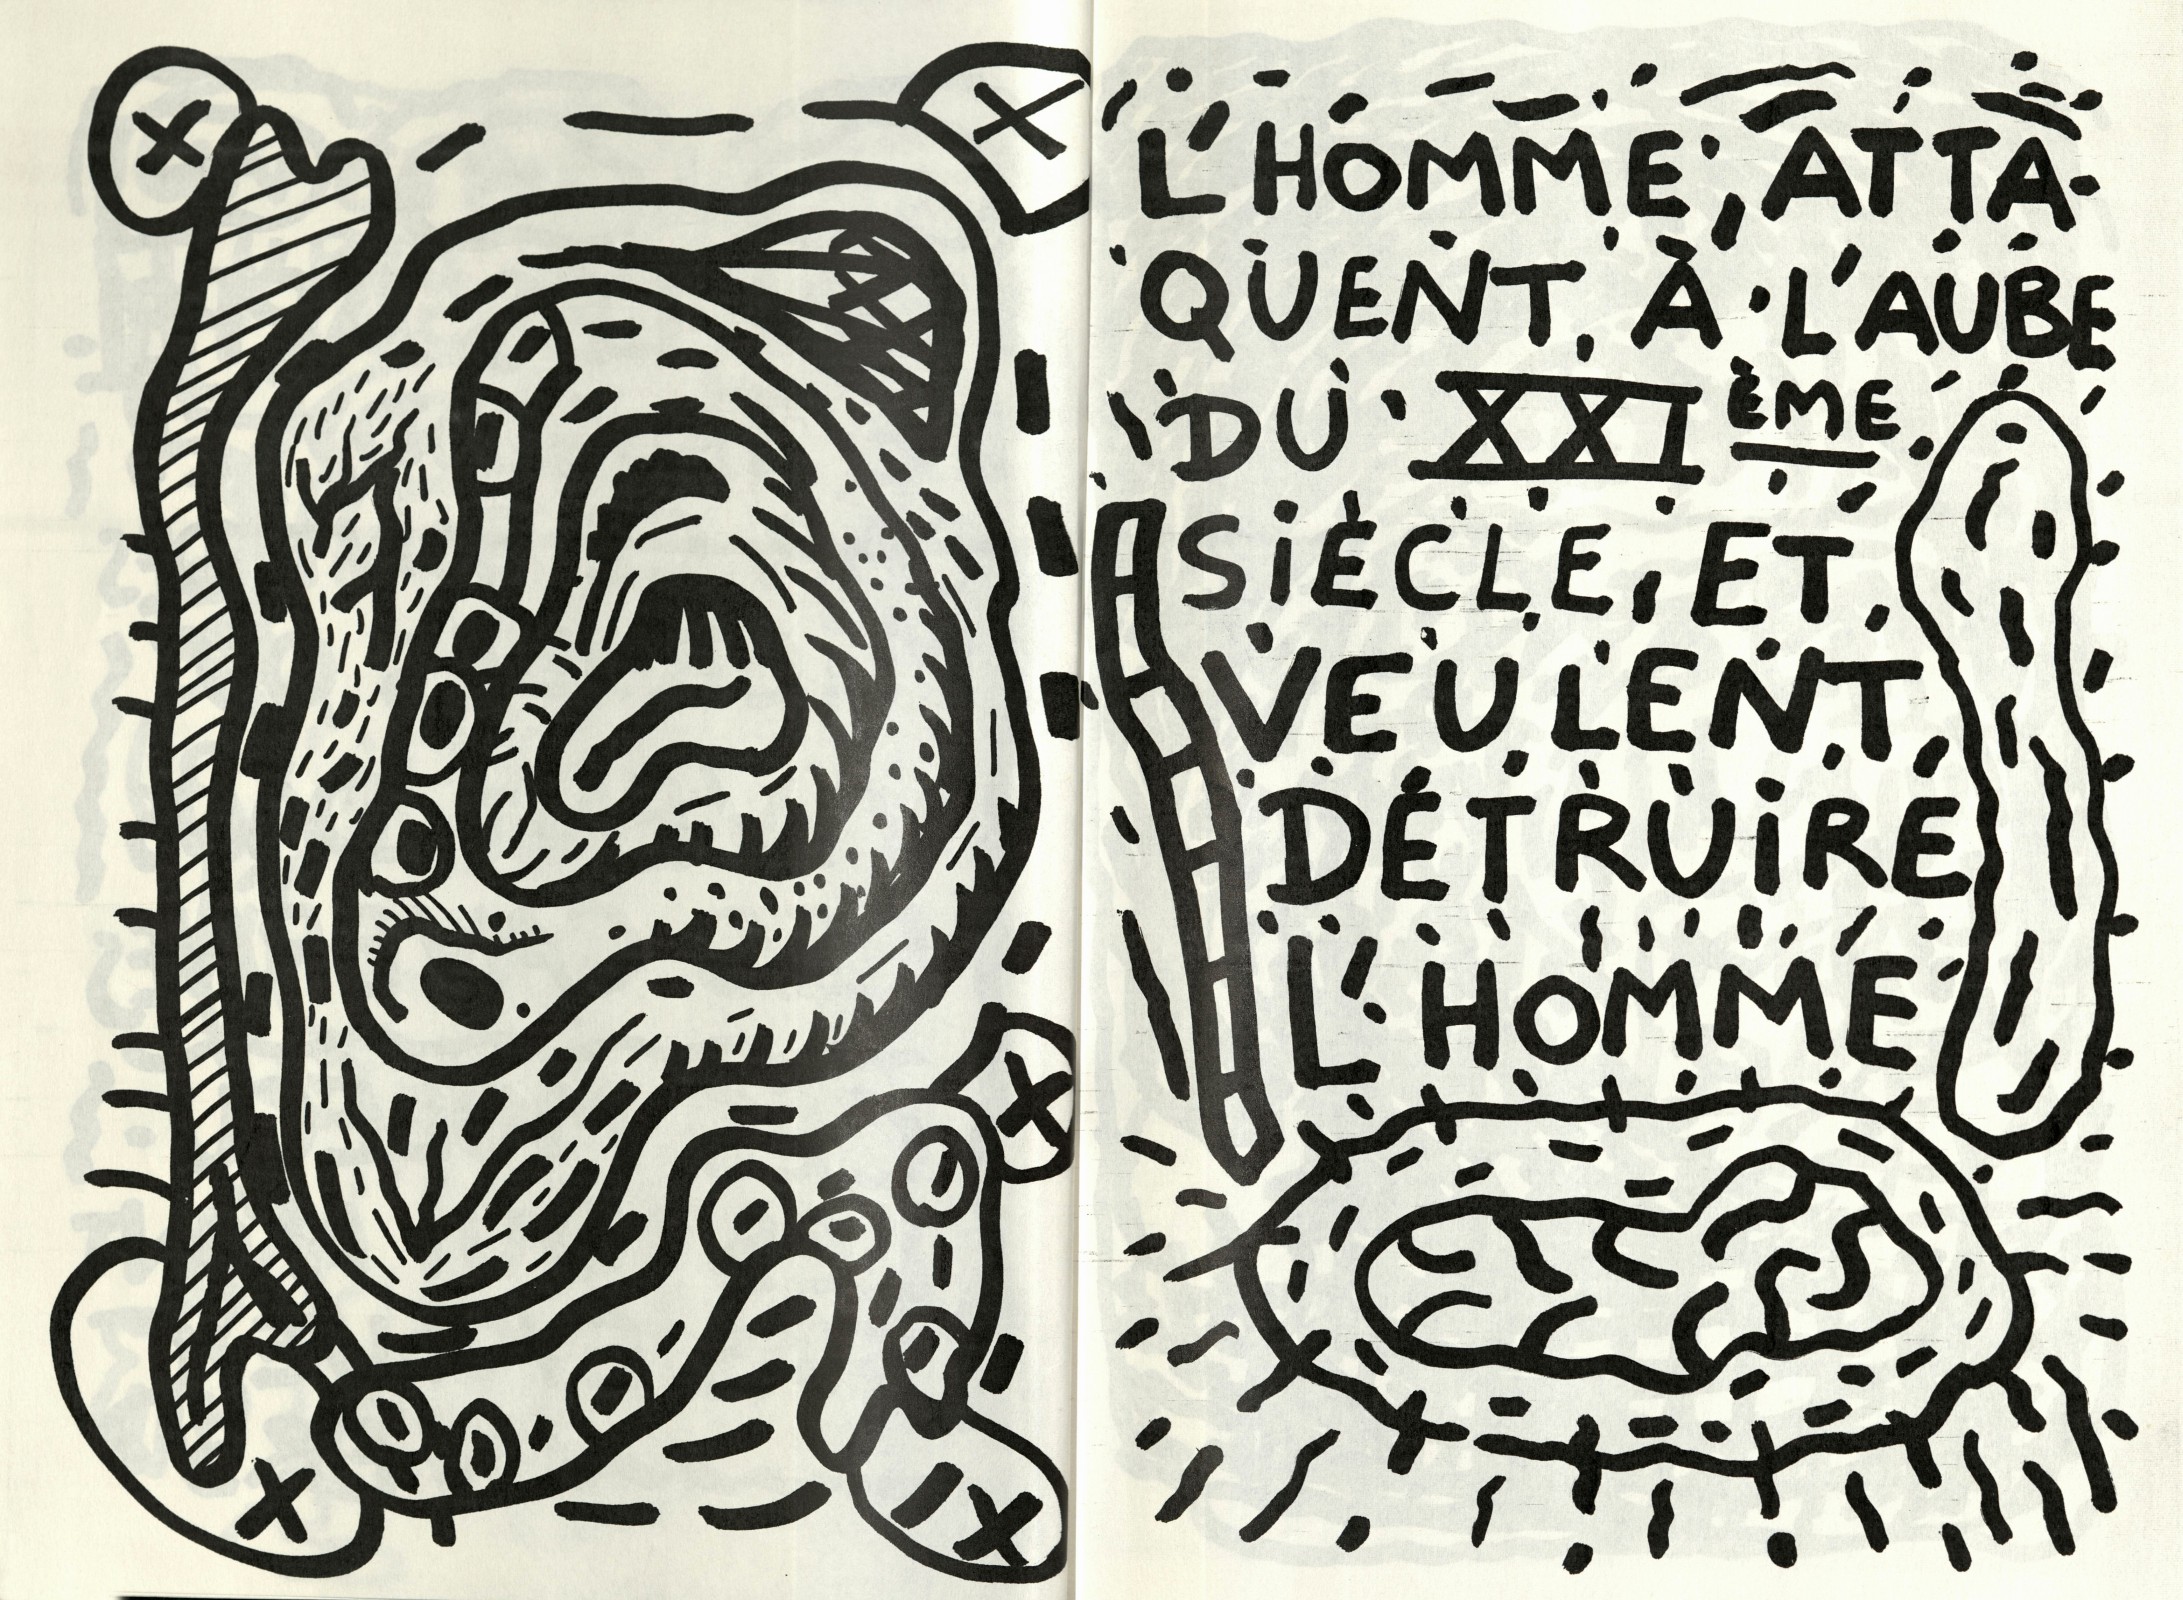 L'HOMME, ATTA-
QUENT, À L'AUBE
DU XXIÈME
SIÈCLE, ET
VEULENT
DÉTRUIRE
L'HOMME